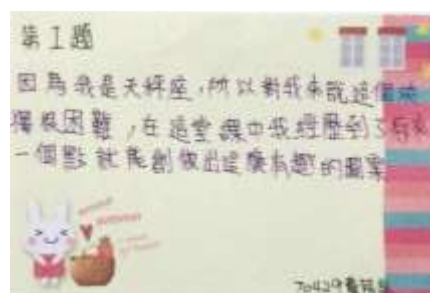 第1題
因為我是天秤座，所以對我來說這個
很困難，在這堂課中我經歷到了
一個點就能創做出這麼有趣的圖案
70429